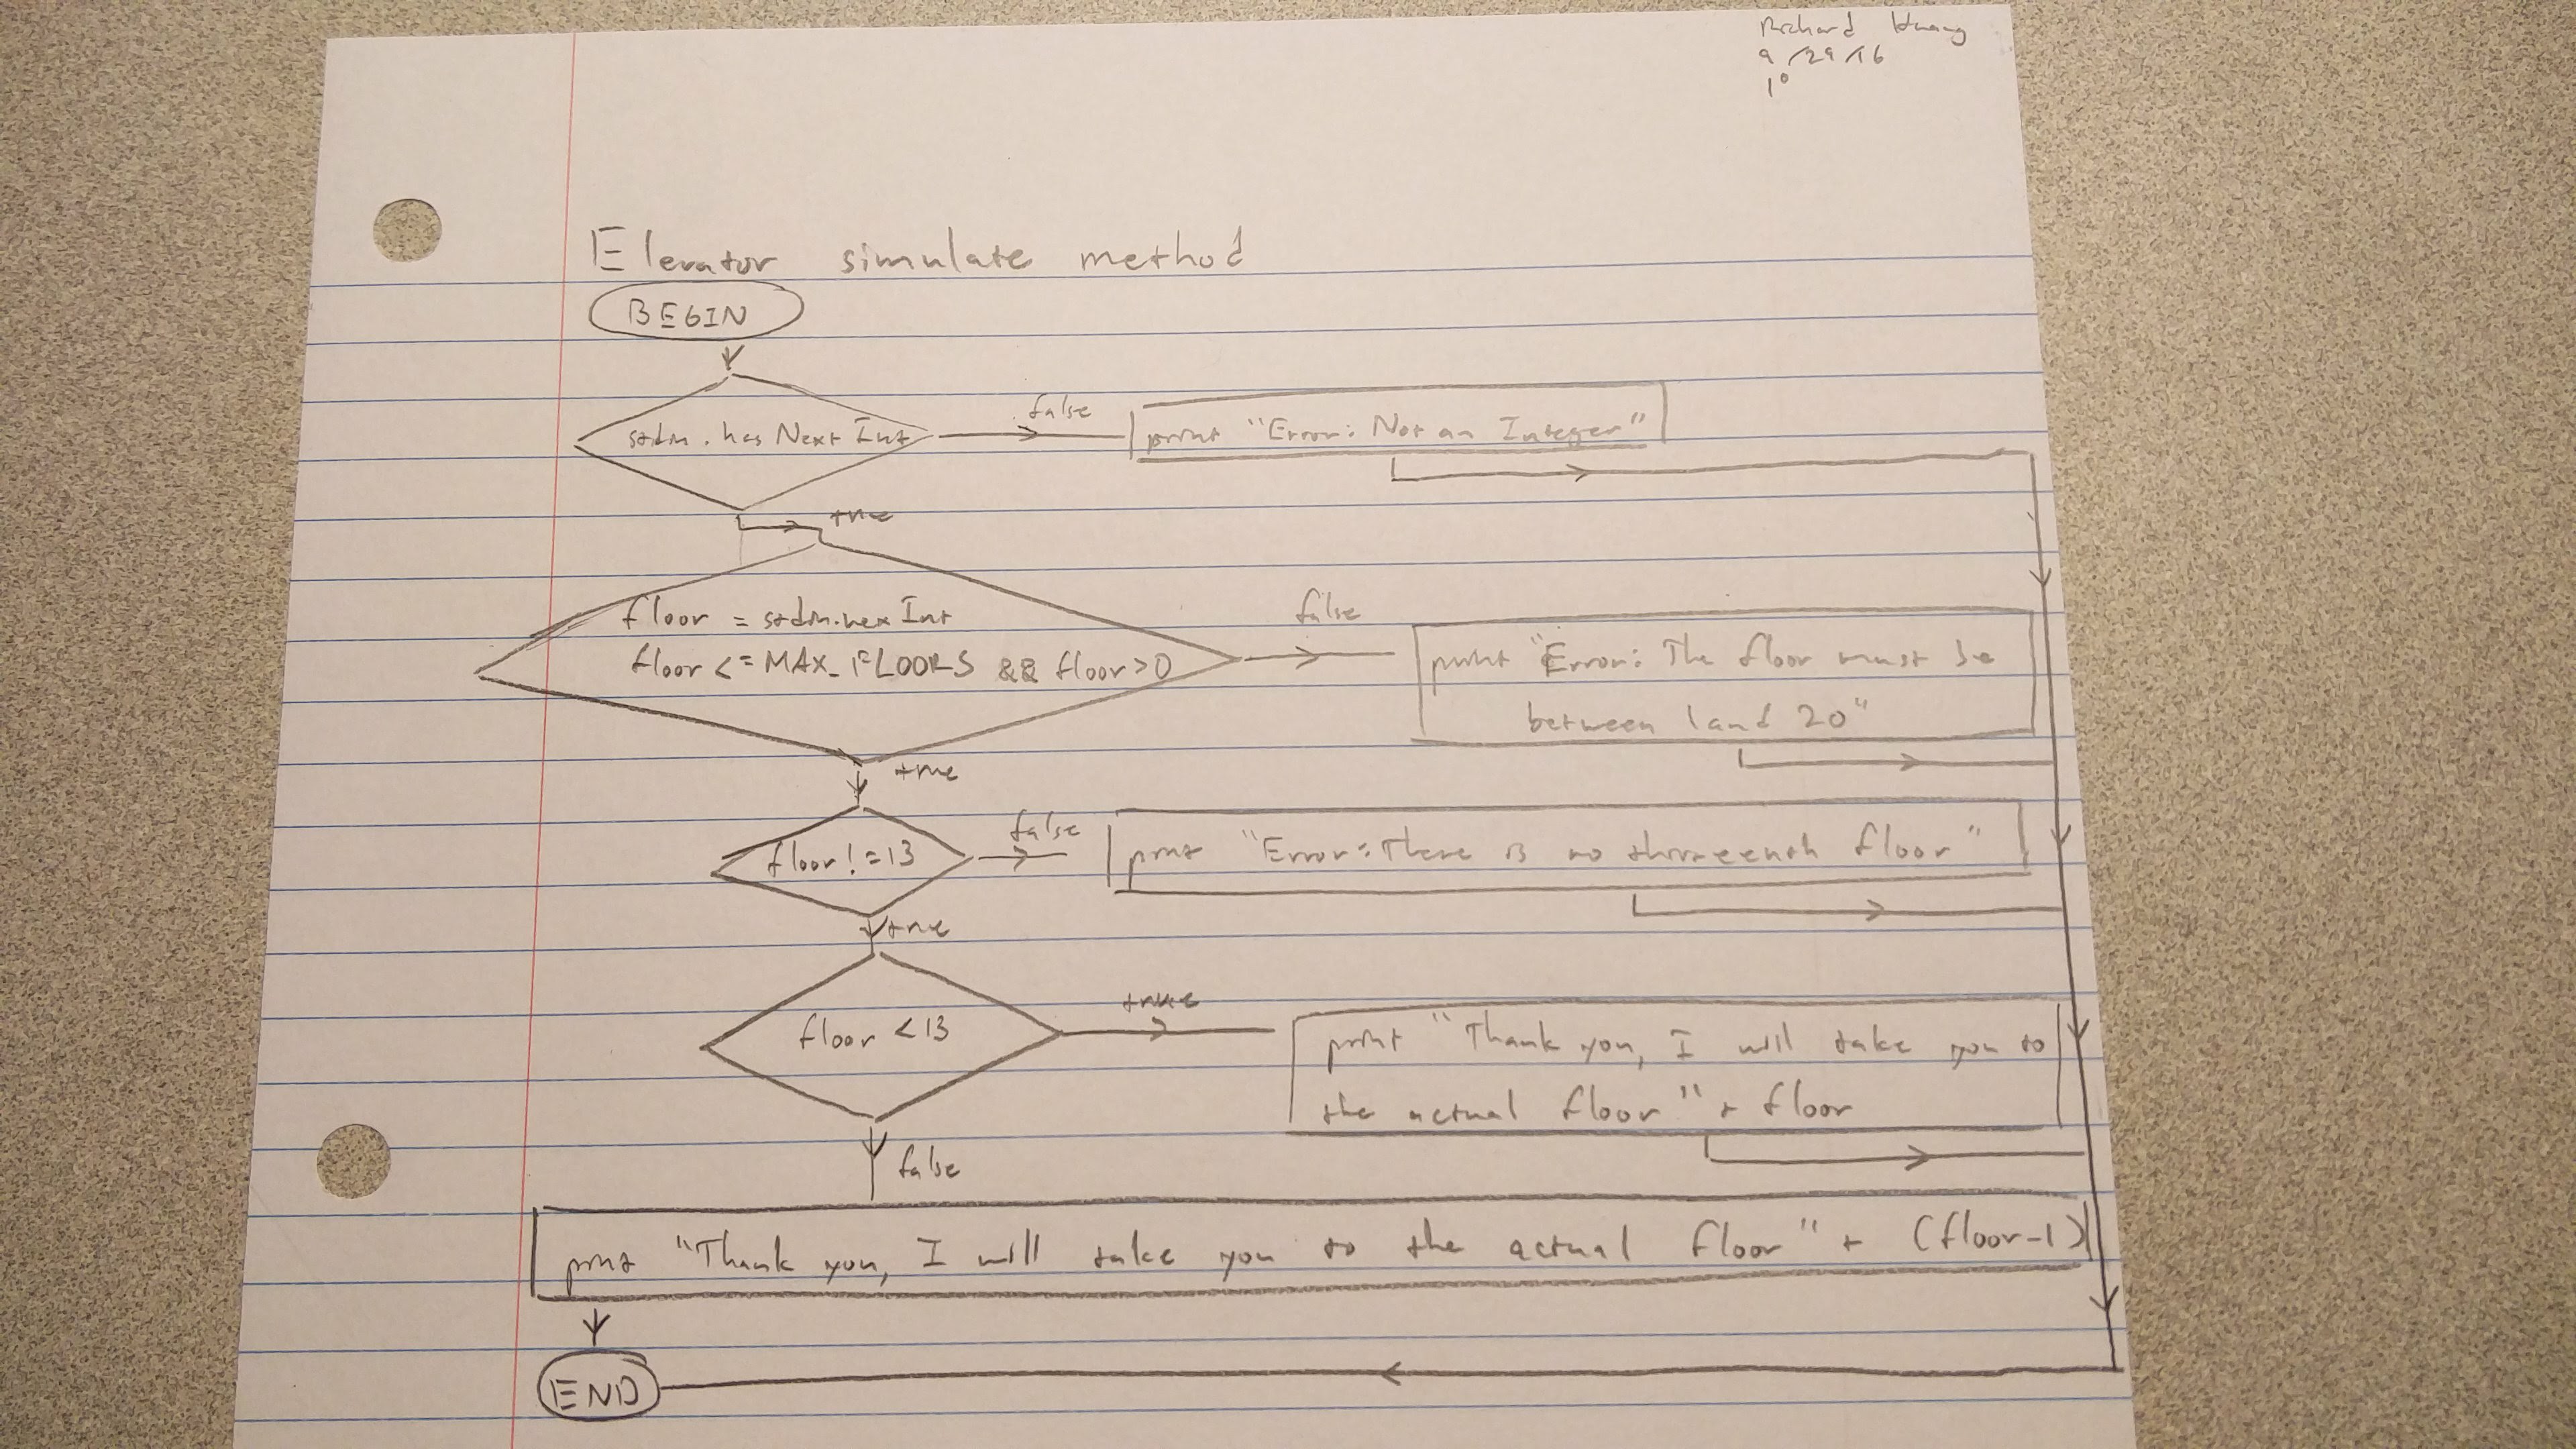 Richard Huang
9/29/16
1°
Elevator simulate method
BEGIN
stdin.hasNextInt
false
print "Error: Not an Integer"
true
floor = stdin.nexInt
floor <= MAX_FLOORS && floor > 0
false
print "Error: The floor must be
between 1 and 20"
true
floor != 13
false
print "Error: There is no thirteenth floor"
true
floor < 13
true
print "Thank you, I will take you to
the actual floor" + floor
false
print "Thank you, I will take you to the actual floor" + (floor-1)
END